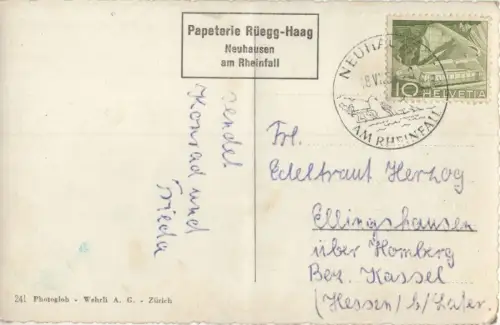 Papeterie Rüegg-Haag
Neuhausen
am Rheinfall
10 HELVETIA
AM RHEINFALL
sendet
Konrad und
Frieda
Frl.
Edeltraut Herzog
Ellingshausen
über Homberg
Bez. Kassel
(Hessen)
241 Photoglob - Wehrli A. G. - Zürich